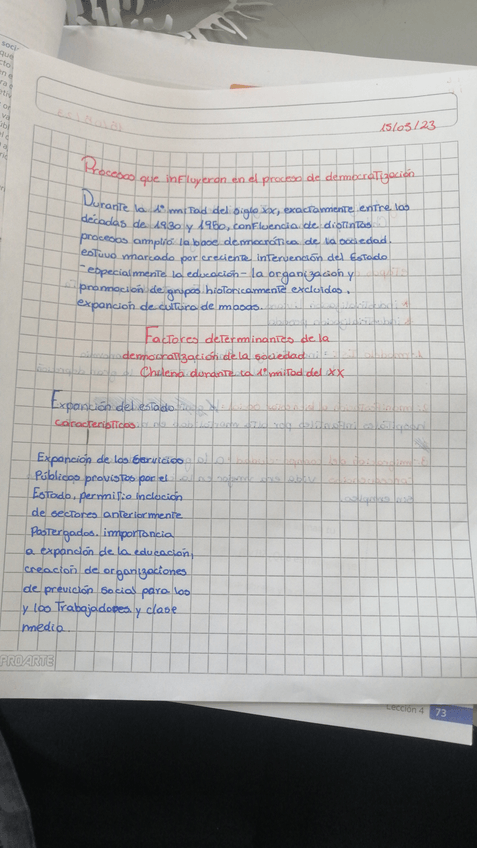 15/05/23
Procesos que influyeron en el proceso de democratización
Durante la 1° mitad del siglo XX, exactamente entre las
décadas de 1930 y 1960, confluencia de distintos
procesos amplió la base democrática de la sociedad.
estuvo marcado por creciente intervención del Estado
-especialmente la educación- la organización y
promoción de grupos historicamente excluidos.
expanción de cultura de masas.
Factores determinantes de la
democratización de la sociedad
Chilena durante la 1° mitad del XX
Expanción del estado
caracteristicas
Expanción de los Servicios
Públicos provistos por el
Estado, permitio inclución
de sectores anteriormente
Postergados. importancia
a expanción de la educación,
creación de organizaciones
de previción social para los
y los Trabajadores y clase
media.
PROARTE
Lección 4 73